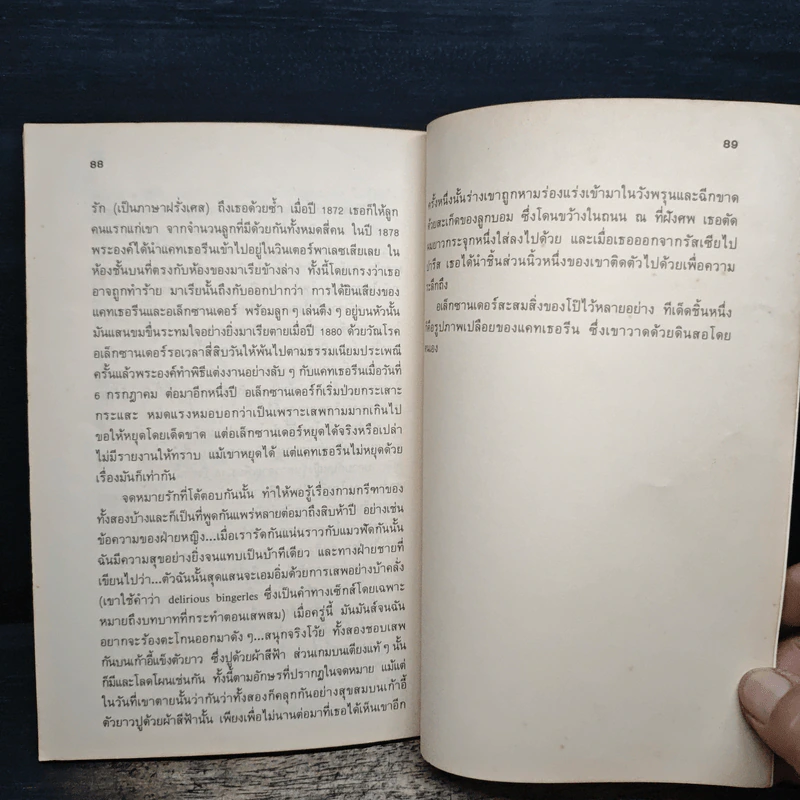 88
รัก (เป็นภาษาฝรั่งเศส) ถึงเธอด้วยซ้ำ เมื่อปี 1872 เธอก็ให้ลูก
คนแรกแก่เขา จากจำนวนลูกที่มีด้วยกันทั้งหมดสี่คน ในปี 1878
พระองค์ได้นำแคทเธอรีนเข้าไปอยู่ในวินเตอร์พาเลซเสียเลย ใน
ห้องชั้นบนที่ตรงกับห้องของมาเรียข้างล่าง ทั้งนี้โดยเกรงว่าเธอ
อาจถูกทำร้าย มาเรียนั้นถึงกับออกปากว่า การได้ยินเสียงของ
แคทเธอรีนและอเล็กซานเดอร์ พร้อมลูก ๆ เล่นตึง ๆ อยู่บนหัวนั้น
มันแสนขมขื่นระทมใจอย่างยิ่งมาเรียตายเมื่อปี 1880 ด้วยวัณโรค
อเล็กซานเดอร์รอเวลาสี่สิบวันให้พ้นไปตามธรรมเนียมประเพณี
ครั้นแล้วพระองค์ทำพิธีแต่งงานอย่างลับ ๆ กับแคทเธอรีนเมื่อวันที่
6 กรกฎาคม ต่อมาอีกหนึ่งปี อเล็กซานเดอร์ก็เริ่มป่วยกระเสาะ
กระแสะ หมดแรงหมอบอกว่าเป็นเพราะเสพกามมากเกินไป
ขอให้หยุดโดยเด็ดขาด แต่อเล็กซานเดอร์หยุดได้จริงหรือเปล่า
ไม่มีรายงานให้ทราบ แม้เขาหยุดได้ แต่แคทเธอรีนไม่หยุดด้วย
เรื่องมันก็เท่ากัน
จดหมายรักที่โต้ตอบกันนั้น ทำให้พอรู้เรื่องกามกรีฑาของ
ทั้งสองบ้างและก็เป็นที่พูดกันแพร่หลายต่อมาถึงสิบห้าปี อย่างเช่น
ข้อความของฝ่ายหญิง...เมื่อเรารัดกันแน่นราวกับแมวฟัดกันนั้น
ฉันมีความสุขอย่างยิ่งจนแทบเป็นบ้าทีเดียว และทางฝ่ายชายที่
เขียนไปว่า...ตัวฉันนั้นสุดแสนจะเอมอิ่มด้วยการเสพอย่างบ้าคลั่ง
(เขาใช้คำว่า delirious bingerles ซึ่งเป็นคำทางเซ็กส์โดยเฉพาะ
หมายถึงบทบาทที่กระทำตอนเสพสม) เมื่อครู่นี้ มันมันส์จนฉัน
อยากจะร้องตะโกนออกมาดัง ๆ...สนุกจริงโว้ย ทั้งสองชอบเสพ
กันบนเก้าอี้แข็งตัวยาว ซึ่งปูด้วยผ้าสีฟ้า ส่วนเกมบนเตียงแท้ ๆ นั้น
ก็มีและโลดโผนเช่นกัน ทั้งนี้ตามอักษรที่ปรากฏในจดหมาย แม้แต่
ในวันที่เขาตายนั้นว่ากันว่าทั้งสองก็คลุกกันอย่างสุขสมบนเก้าอี้
ตัวยาวปูด้วยผ้าสีฟ้านั้น เพียงเพื่อไม่นานต่อมาที่เธอได้เห็นเขาอีก
89
ครั้งหนึ่งนั้นร่างเขาถูกหามร่องแร่งเข้ามาในวังพรุนและฉีกขาด
ด้วยสะเก็ดของลูกบอม ซึ่งโดนขว้างในถนน ณ ที่ฝังศพ เธอตัด
ผมยาวกระจุกหนึ่งใส่ลงไปด้วย และเมื่อเธอออกจากรัสเซียไป
ปารีส เธอได้นำชิ้นส่วนนิ้วหนึ่งของเขาติดตัวไปด้วยเพื่อความ
ระลึกถึง
อเล็กซานเดอร์สะสมสิ่งของโป๊ไว้หลายอย่าง ทีเด็ดชิ้นหนึ่ง
ก็คือรูปภาพเปลือยของแคทเธอรีน ซึ่งเขาวาดด้วยดินสอโดย
ตนเอง